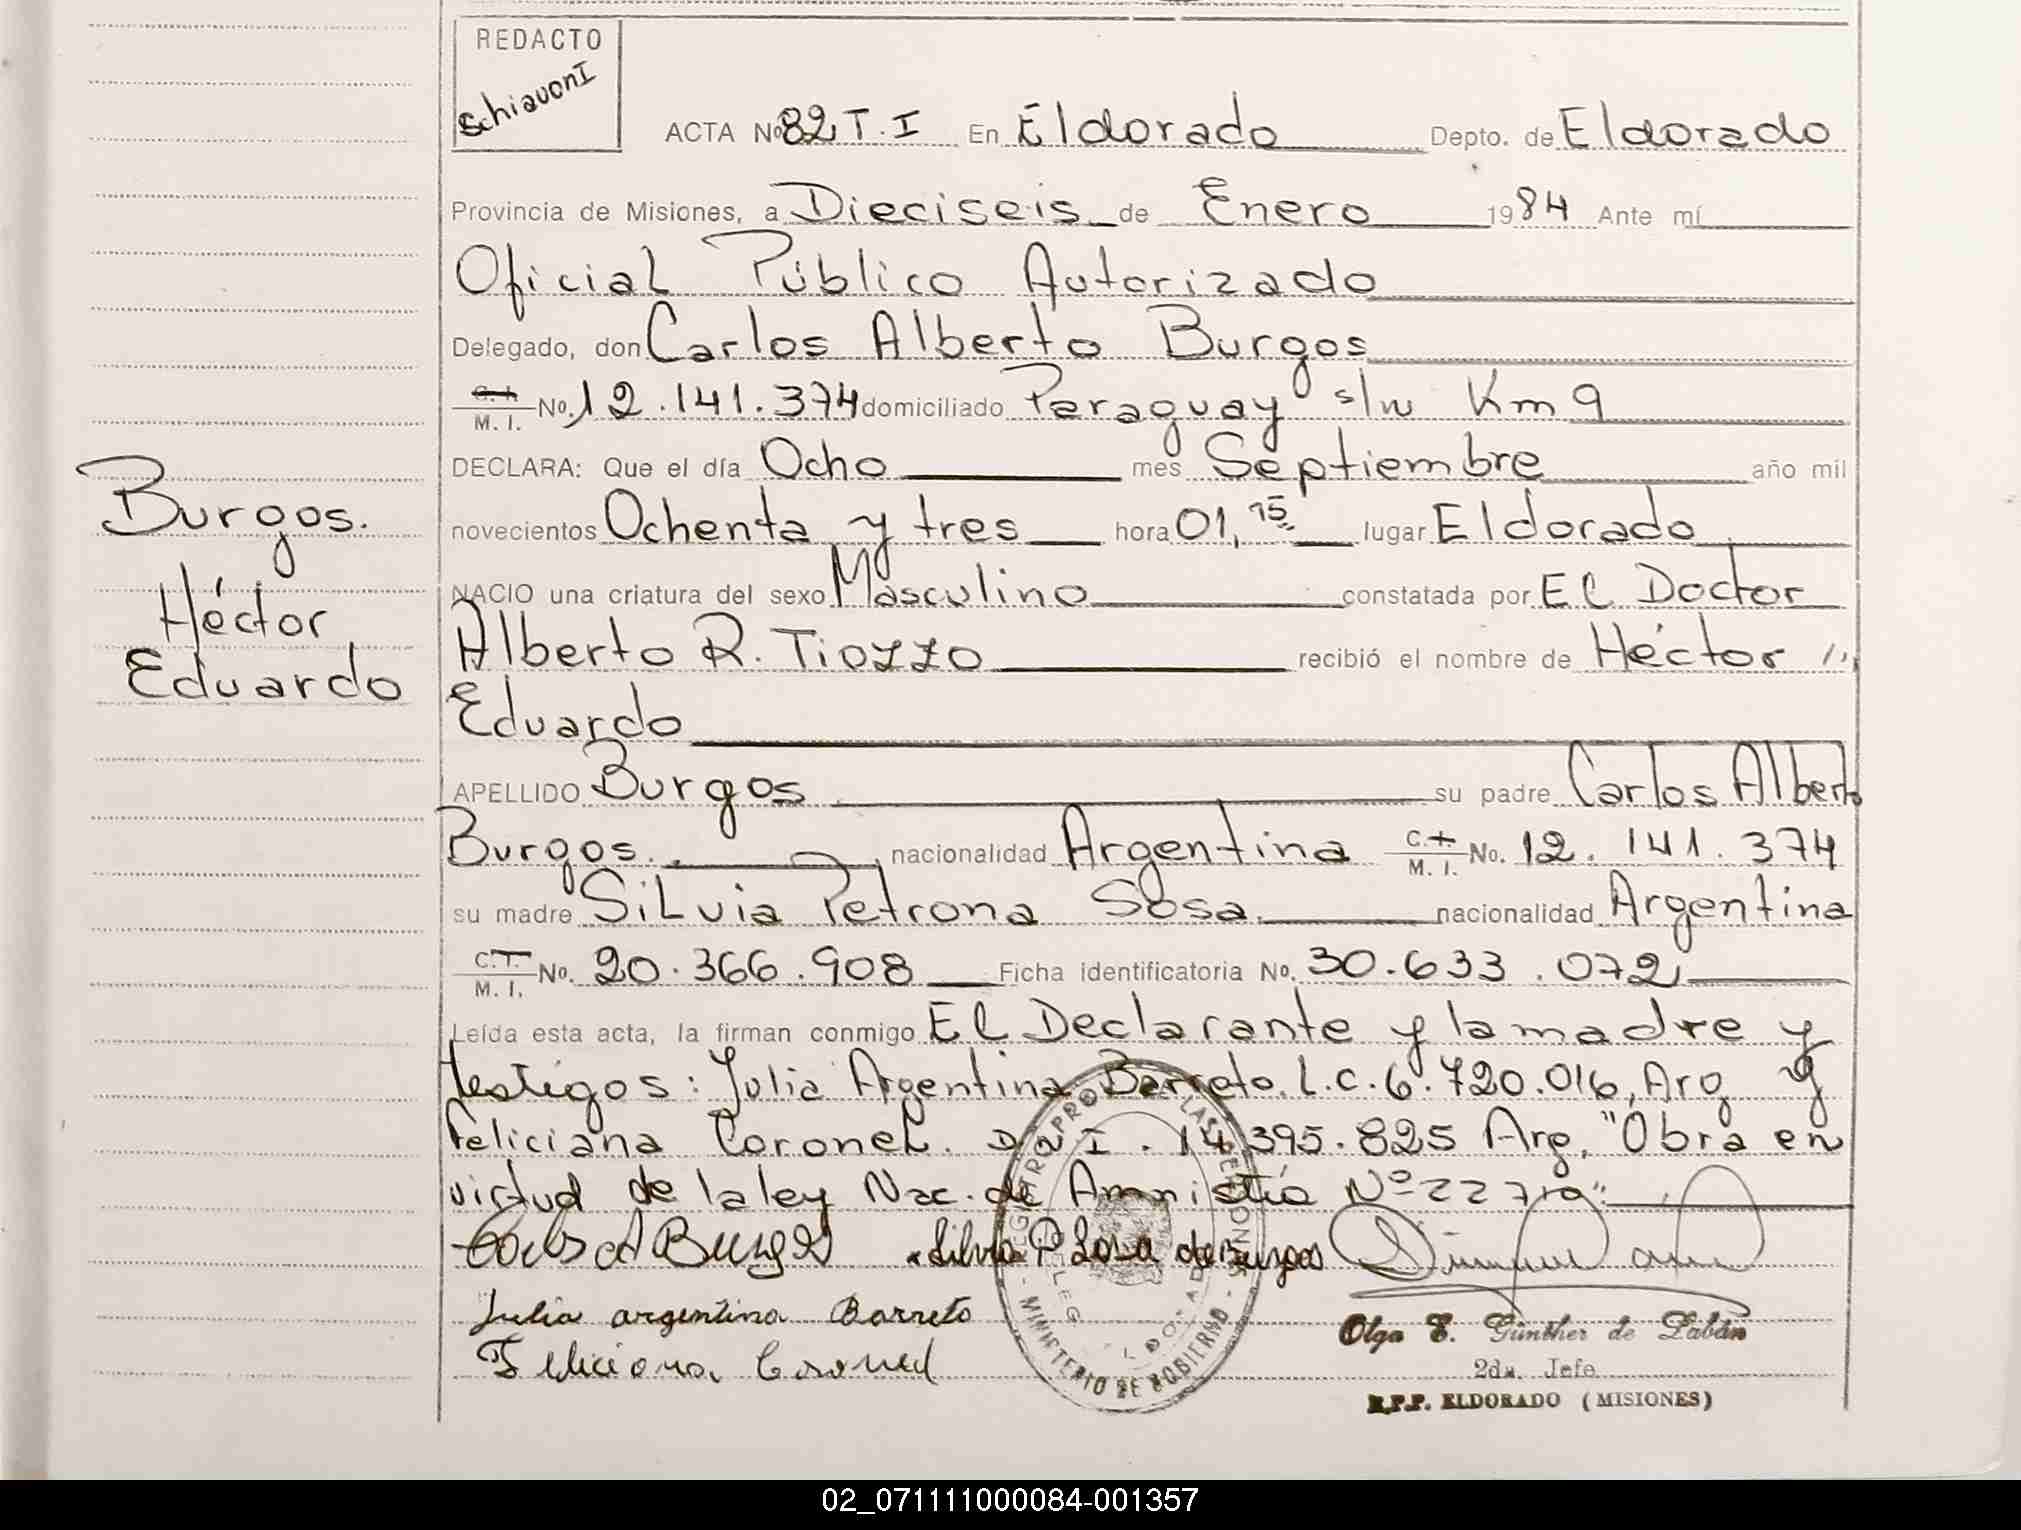 REDACTO
SchiavonI
ACTA Nº 82 T. I En Eldorado Depto. de Eldorado
Provincia de Misiones, a Dieciseis de Enero 1984 Ante mí
Oficial Público Autorizado
Delegado, don Carlos Alberto Burgos
C. I. / M. I. No. 12.141.374 domiciliado Paraguay s/n Km 9
DECLARA: Que el día Ocho mes Septiembre año mil
novecientos Ochenta y tres hora 01,15 lugar Eldorado
NACIO una criatura del sexo Masculino constatada por El Doctor
Alberto R. Tiozzo recibió el nombre de Héctor
Eduardo
APELLIDO Burgos su padre Carlos Alberto
Burgos. nacionalidad Argentina C. I. / M. I. No. 12.141.374
su madre SiLvia Petrona Sosa. nacionalidad Argentina
C. I. / M. I. No. 20.366.908 Ficha identificatoria No. 30.633.072
Leída esta acta, la firman conmigo El Declarante y la madre y
testigos: Julia Argentina Barreto. L.C. 6.720.016, Arg y
Feliciana Coronel. D.N.I. 14.395.825 Arg, "Obra en
virtud de la ley Nac. de Amnistía Nº 22710".
Burgos.
Héctor
Eduardo
Carlos A Burgos Silvia P Sosa de Burgos
Julia argentina Barreto
Feliciana Coronel
MINISTERIO DE GOBIERNO
Olga E. Günther de Labán
2da. Jefe
R.P.P. ELDORADO (MISIONES)
02_071111000084-001357